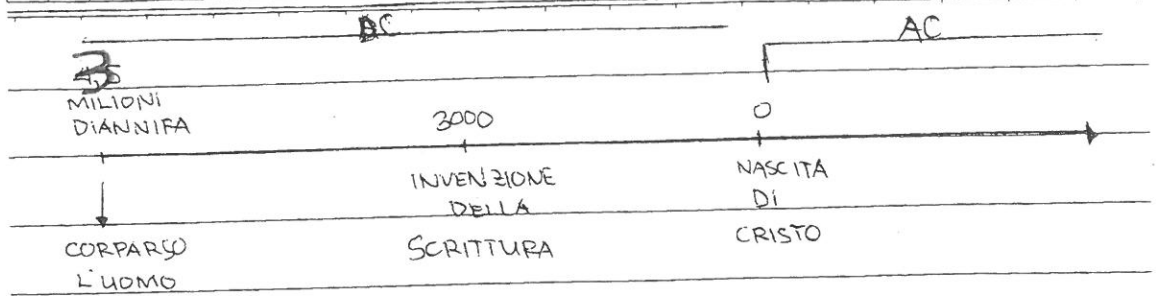 AC
3
MILIONI
DIANNIFA
3000
0
INVENZIONE
DELLA
SCRITTURA
NASCITA
DI
CRISTO
CORPARSO
L'UOMO